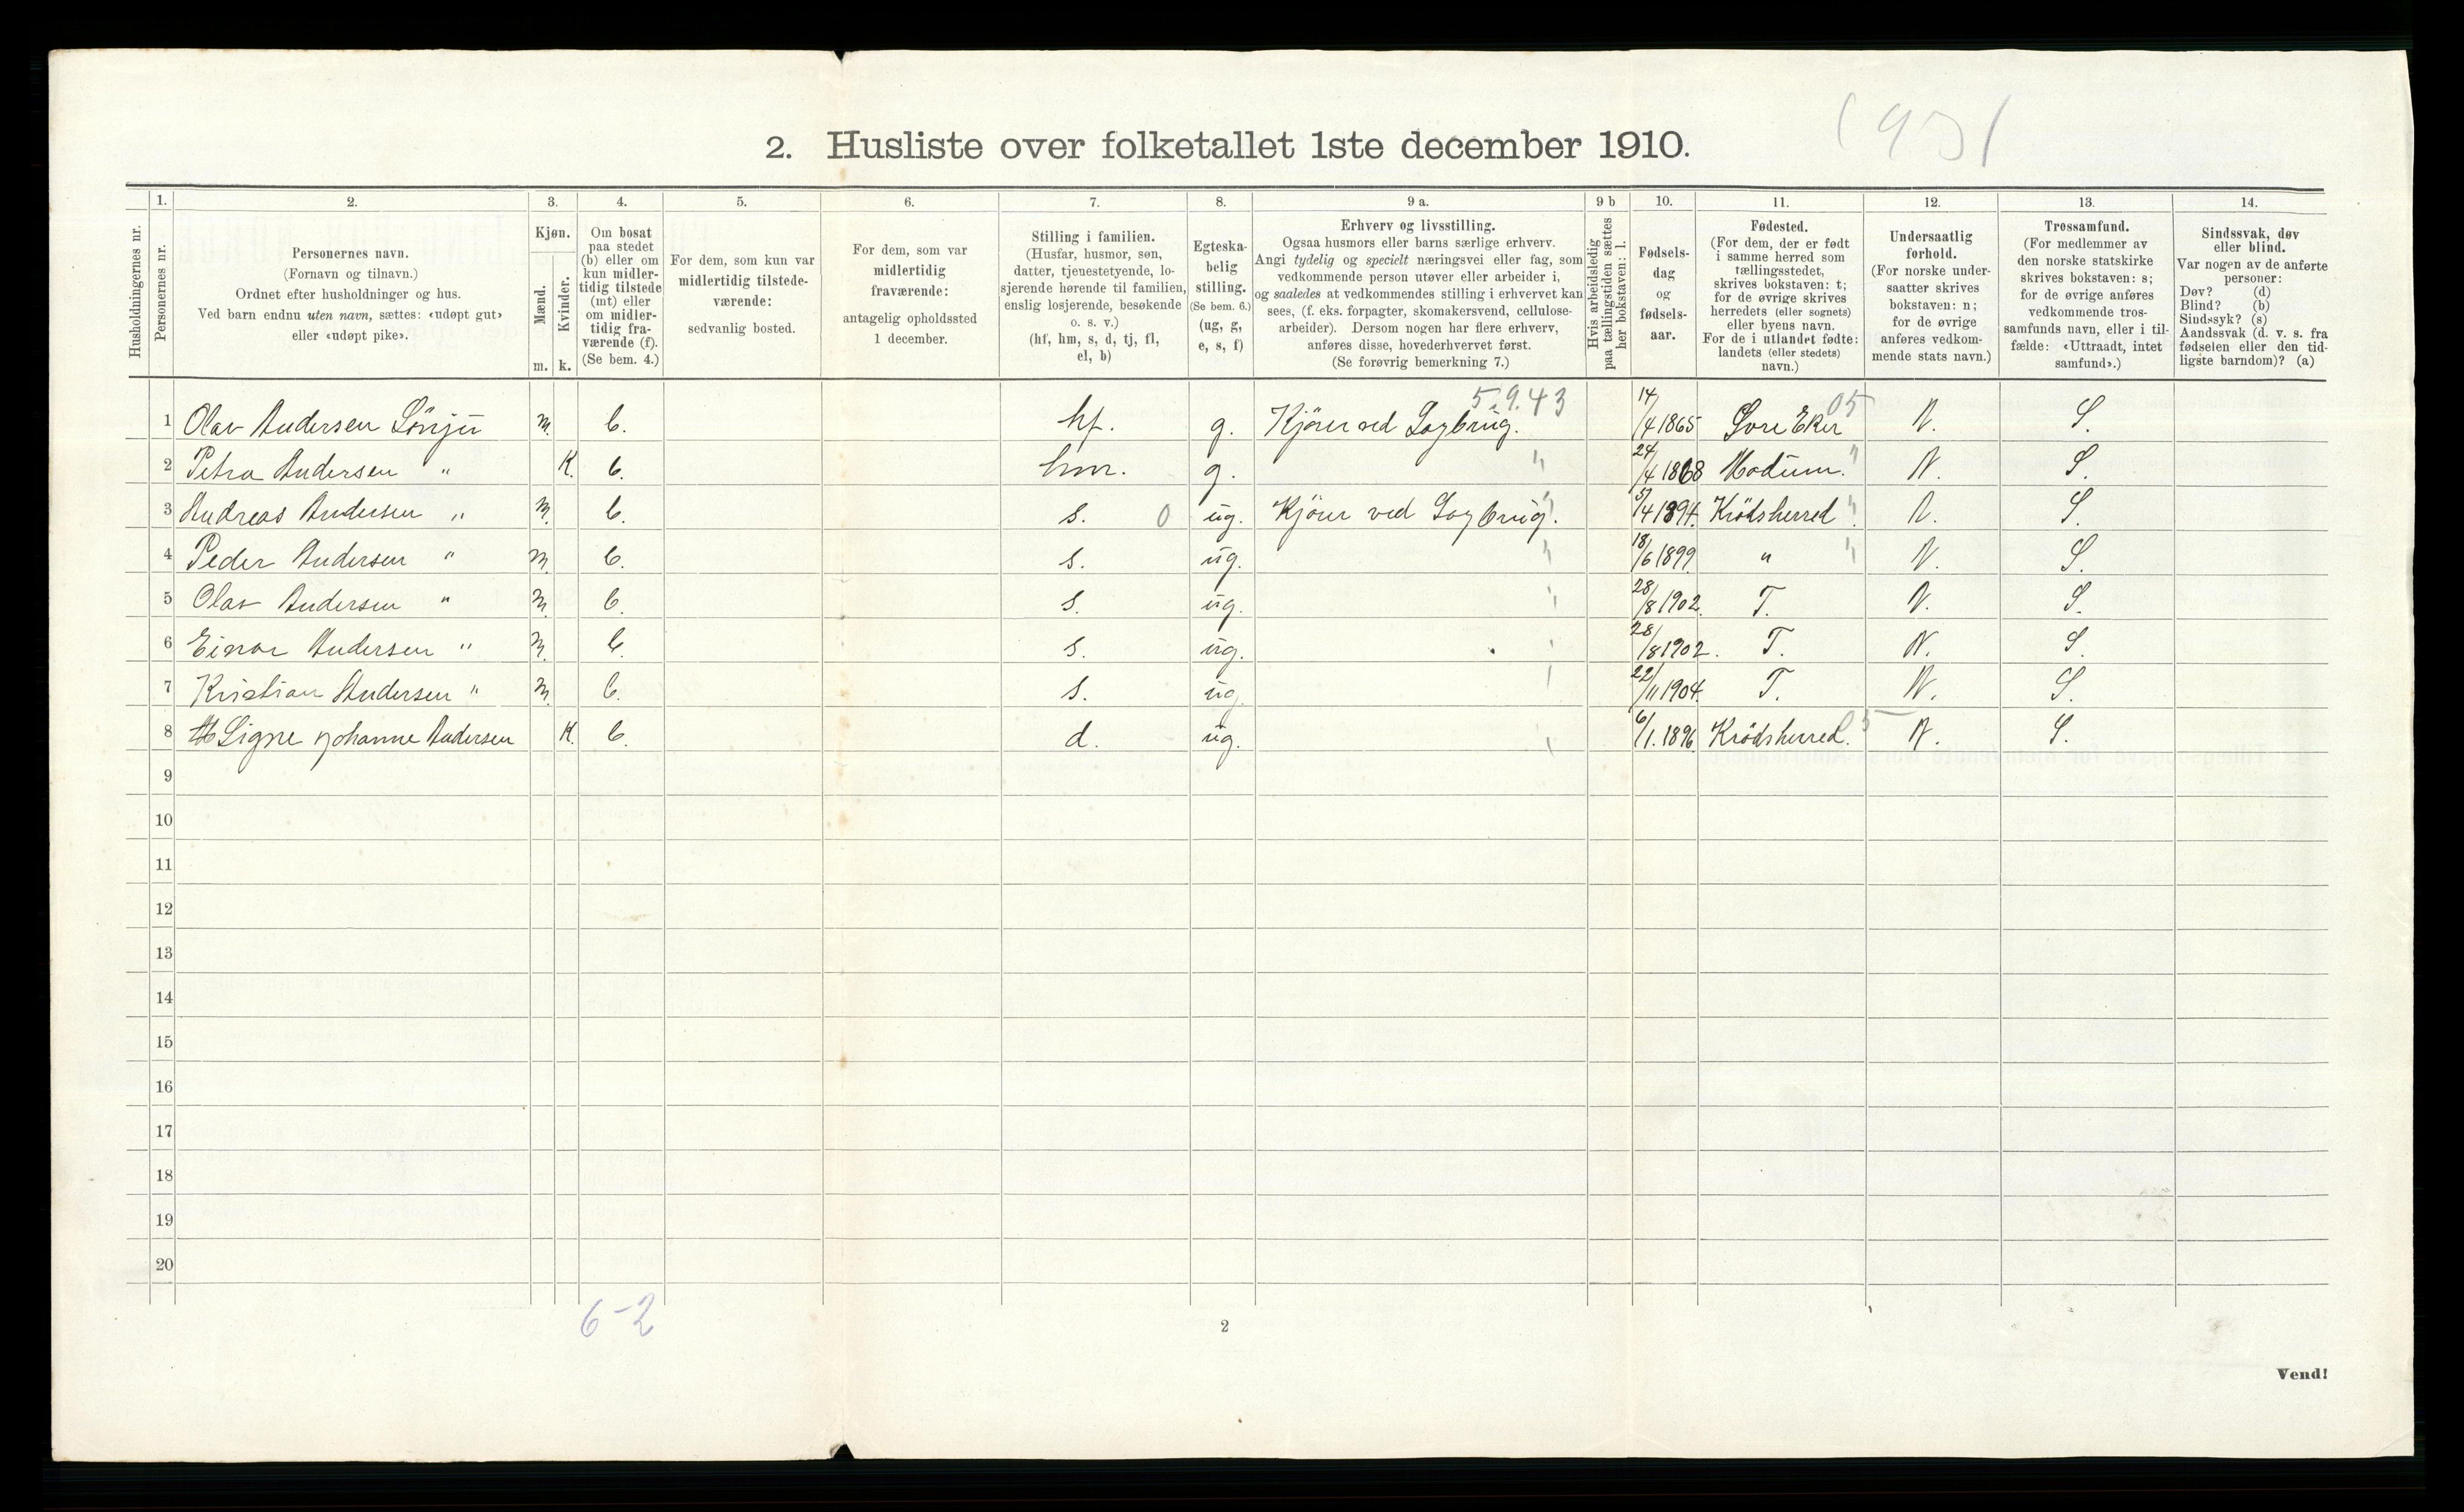 2. Husliste over folketallet 1ste december 1910.
Husholdningernes nr.
1.
Personernes nr.
2.
Personernes navn.
(Fornavn og tilnavn.)
Ordnet efter husholdninger og hus.
Ved barn endnu uten navn, sættes: «udøpt gut»
eller «udøpt pike».
3.
Kjøn.
Mænd.
m.
Kvinder.
k.
4.
Om bosat
paa stedet
(b) eller om
kun midler-
tidig tilstede
(mt) eller
om midler-
tidig fra-
værende (f).
(Se bem. 4.)
5.
For dem, som kun var
midlertidig tilstede-
værende:
sedvanlig bosted.
6.
For dem, som var
midlertidig
fraværende:
antagelig opholdssted
1 december.
7.
Stilling i familien.
(Husfar, husmor, søn,
datter, tjenestetyende, lo-
sjerende hørende til familien,
enslig losjerende, besøkende
o. s. v.)
(hf, hm, s, d, tj, fl,
el, b)
8.
Egteska-
belig
stilling.
(Se bem. 6.)
(ug, g,
e, s, f)
9 a.
Erhverv og livsstilling.
Ogsaa husmors eller barns særlige erhverv.
Angi tydelig og specielt næringsvei eller fag, som
vedkommende person utøver eller arbeider i,
og saaledes at vedkommendes stilling i erhvervet kan
sees, (f. eks. forpagter, skomakersvend, cellulose-
arbeider). Dersom nogen har flere erhverv,
anføres disse, hovederhvervet først.
(Se forøvrig bemerkning 7.)
9 b
Hvis arbeidsledig
paa tællingstiden sættes
her bokstaven: l.
10.
Fødsels-
dag
og
fødsels-
aar.
11.
Fødested.
(For dem, der er født
i samme herred som
tællingsstedet,
skrives bokstaven: t;
for de øvrige skrives
herredets (eller sognets)
eller byens navn.
For de i utlandet fødte:
landets (eller stedets)
navn.)
12.
Undersaatlig
forhold.
(For norske under-
saatter skrives
bokstaven: n;
for de øvrige
anføres vedkom-
mende stats navn.)
13.
Trossamfund.
(For medlemmer av
den norske statskirke
skrives bokstaven: s;
for de øvrige anføres
vedkommende tros-
samfunds navn, eller i til-
fælde: «Uttraadt, intet
samfund».)
14.
Sindssvak, døv
eller blind.
Var nogen av de anførte
personer:
Døv? (d)
Blind? (b)
Sindssyk? (s)
Aandssvak (d. v. s. fra
fødselen eller den tid-
ligste barndom)? (a)
5.9.43 05
1 Olav Andersen Lönju m. b. hf. g. Kjörer ved Sagbrug. 14/4 1865 Övre Eker N. S.
2 Petra Andersen " K. b. hm. g. " 24/4 1868 Modum. " N. S.
3 Andreas Andersen " m. b. s. 0 ug. Kjörer ved Sagbrug. " 5/4 1894. Krödsherred " N. S.
4 Peder Andersen " m. b. s. ug. " 18/6 1899 " " N. S.
5 Olav Andersen " m. b. s. ug. " 28/8 1902. T. N. S.
6 Einar Andersen " m. b. s. ug. 28/8 1902. T. N. S.
7 Kristian Andersen " m. b. s. ug. 22/11 1904. T. N. S.
8 Signe Johanne Andersen K. b. d. ug. 6/1. 1896. Krödsherred. 05 N. S.
9
10
11
12
13
14
15
16
17
18
19
20
6-2
2
Vend!